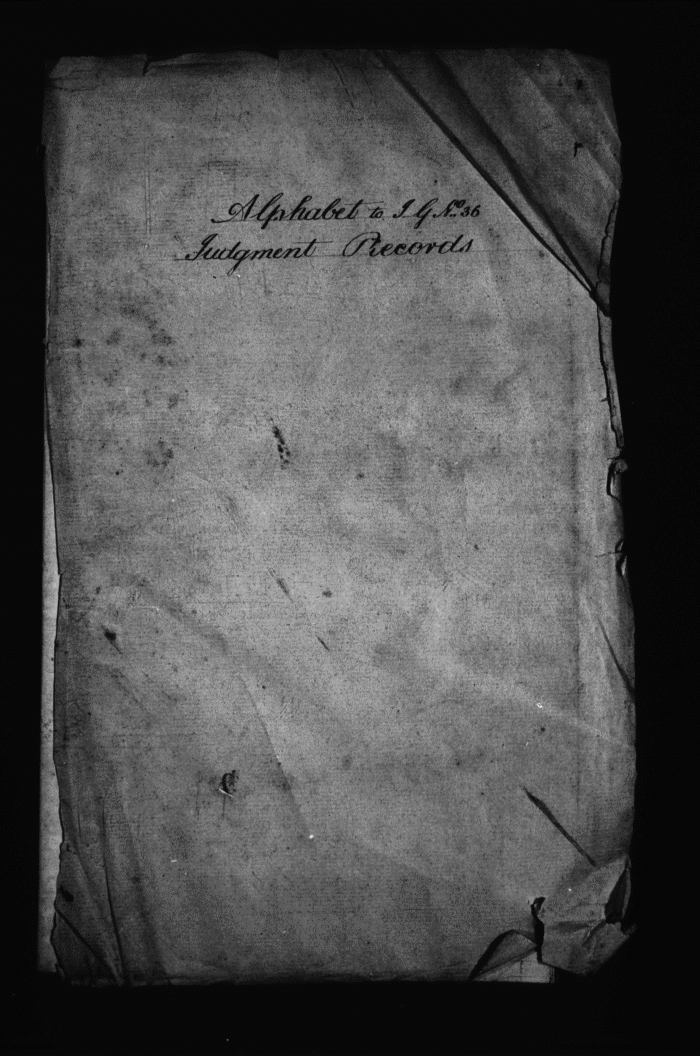 Alphabet to I G No. 36
Judgment Records